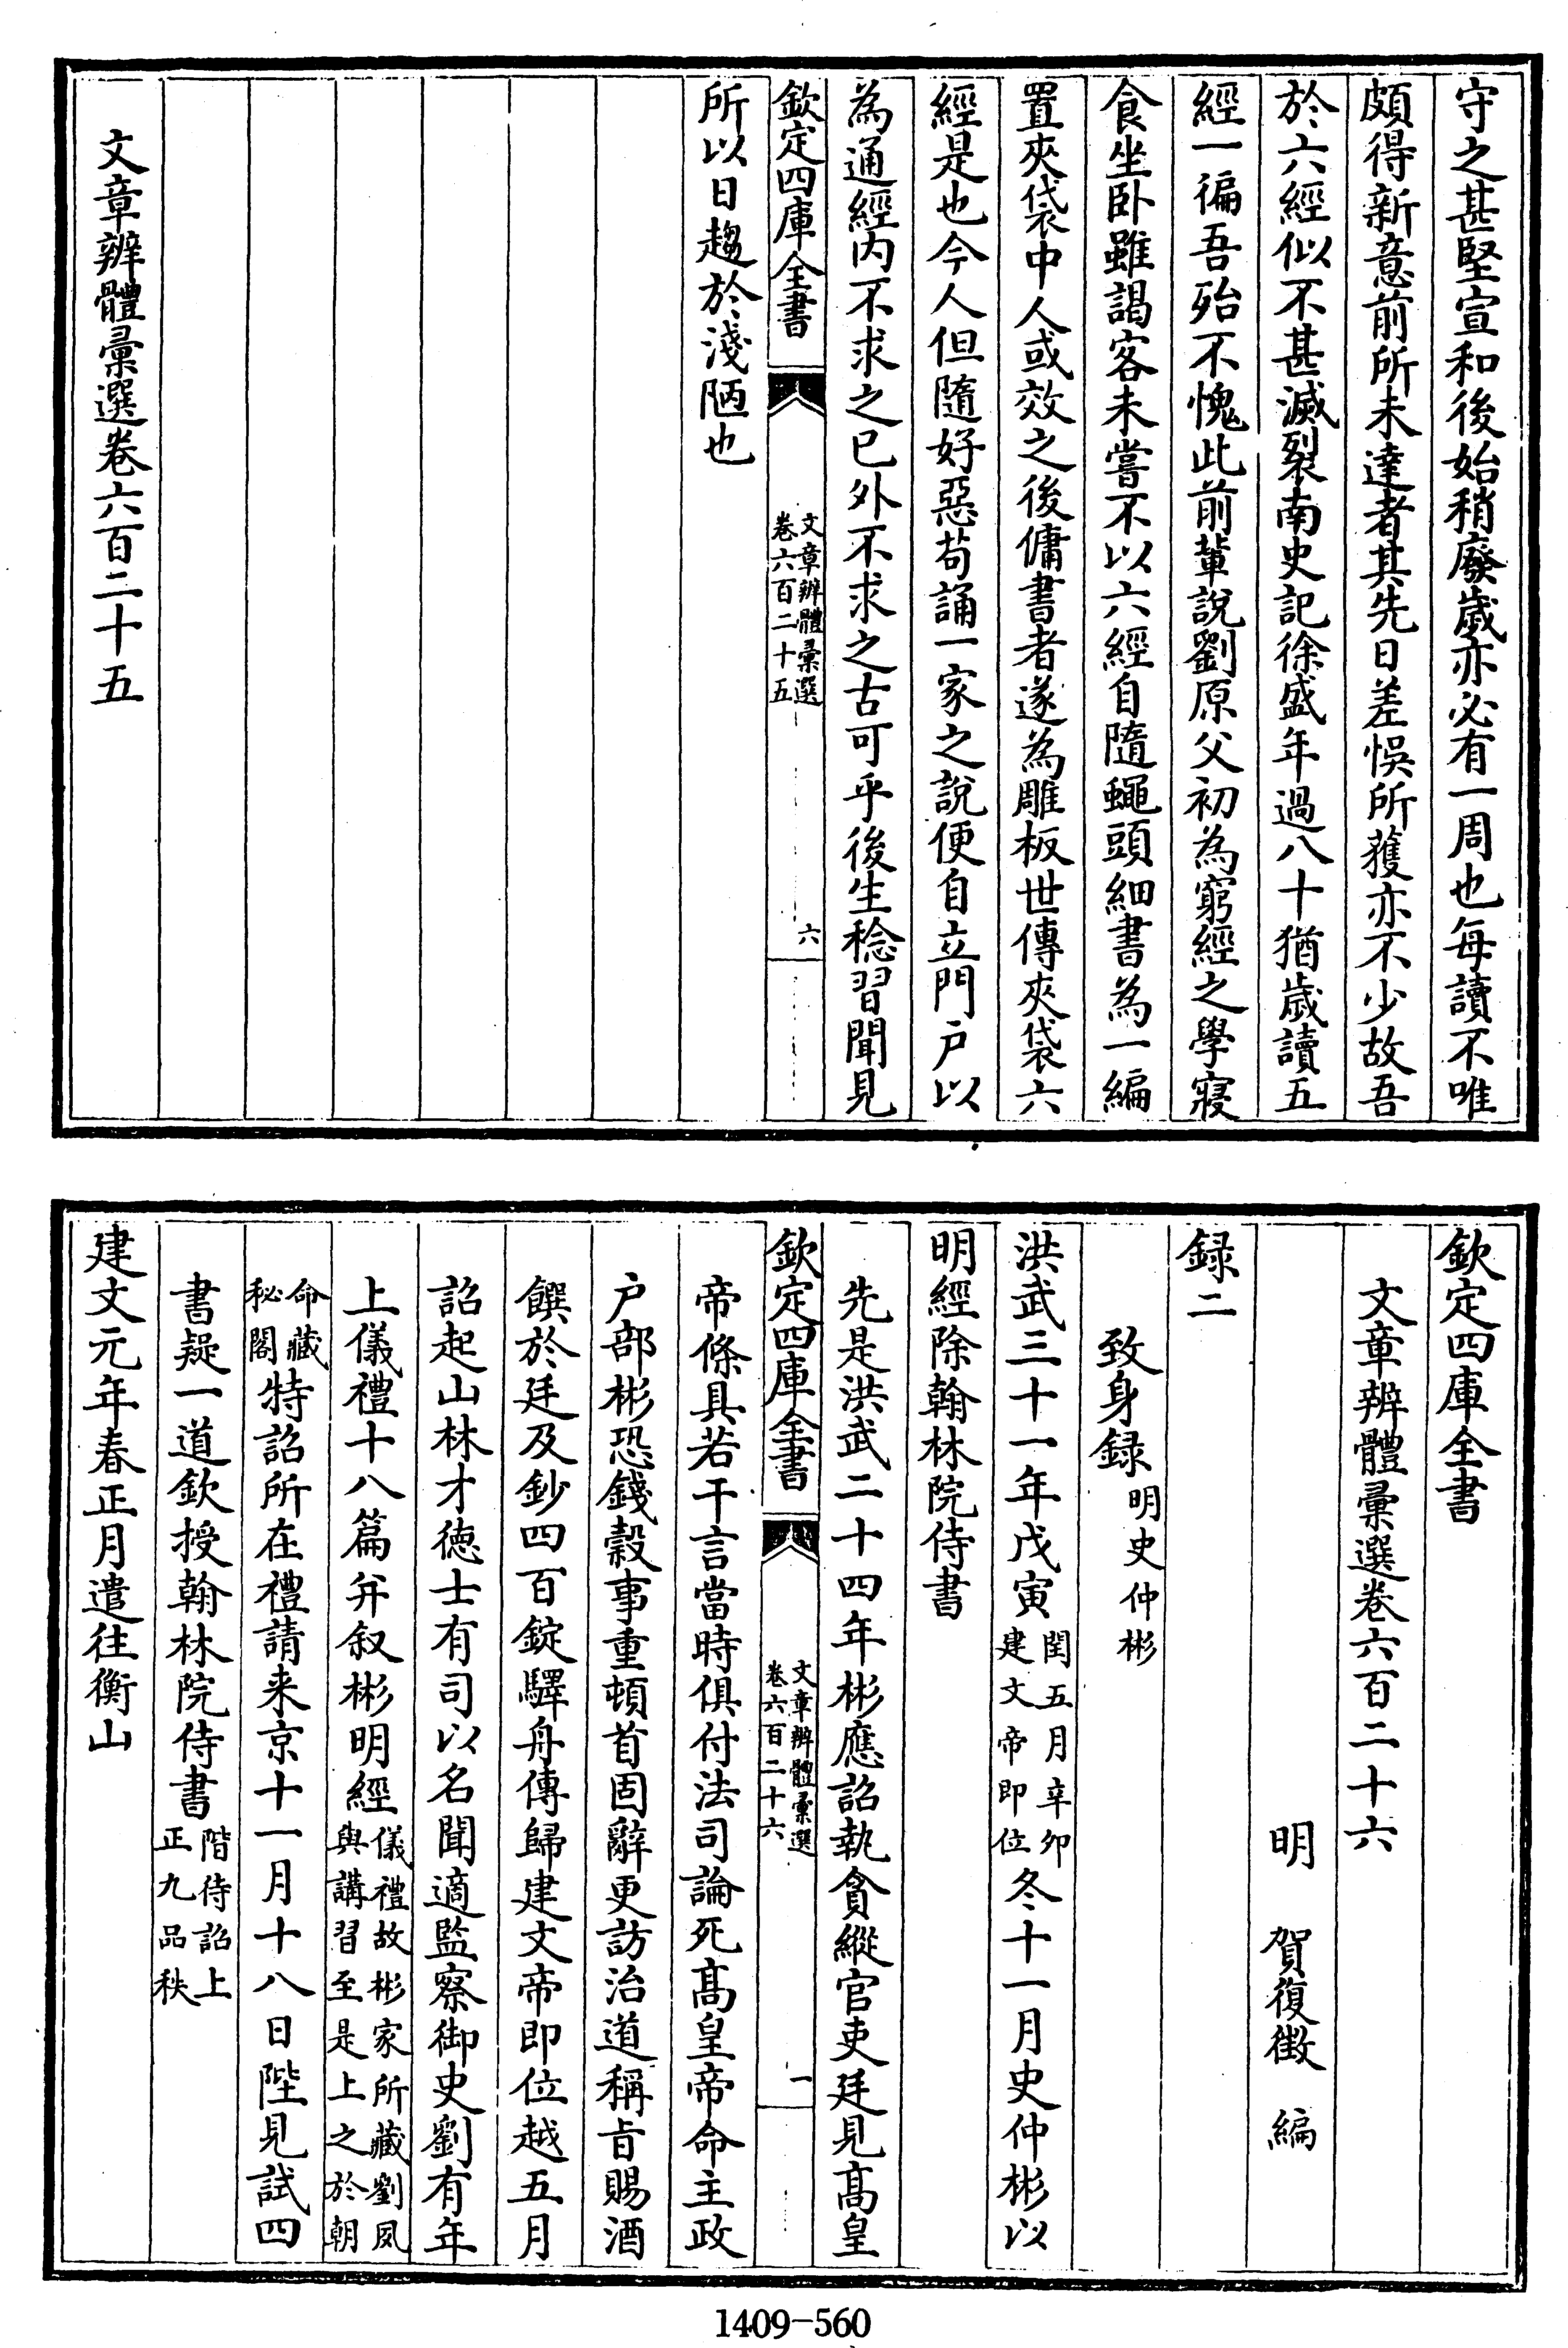 守之甚堅宣和後始稍廢歲亦必有一周也每讀不唯
頗得新意前所未達者其先日差悞所獲亦不少故吾
於六經似不甚滅裂南史記徐盛年過八十猶歲讀五
經一徧吾殆不愧此前輩說劉原父初為窮經之學寢
食坐卧雖謁客未嘗不以六經自隨蠅頭細書為一編
置夾袋中人或效之後傭書者遂為雕板世傳夾袋六
經是也今人但隨好惡苟誦一家之說便自立門戶以
為通經内不求之已外不求之古可乎後生稔習聞見
欽定四庫全書
文章辨體彙選
卷六百二十五
六
所以日趨於淺陋也
文章辨體彙選卷六百二十五
欽定四庫全書
文章辨體彙選卷六百二十六
明 賀復徵 編
録二
致身録明史仲彬
洪武三十一年戊寅閏五月辛卯建文帝即位冬十一月史仲彬以
明經除翰林院侍書
先是洪武二十四年彬應詔執貪縱官吏廷見髙皇
欽定四庫全書
文章辨體彙選
卷六百二十六
一
帝條具若干言當時俱付法司論死髙皇帝命主政
户部彬恐錢穀事重頓首固辭更訪治道稱旨賜酒
饌於廷及鈔四百錠驛舟傳歸建文帝即位越五月
詔起山林才德士有司以名聞適監察御史劉有年
上儀禮十八篇并叙彬明經儀禮故彬家所藏劉夙與講習至是上之於朝
命藏秘閣特詔所在禮請来京十一月十八日陛見試四
書疑一道欽授翰林院侍書階待詔上正九品秩
建文元年春正月遣往衡山
1409-560